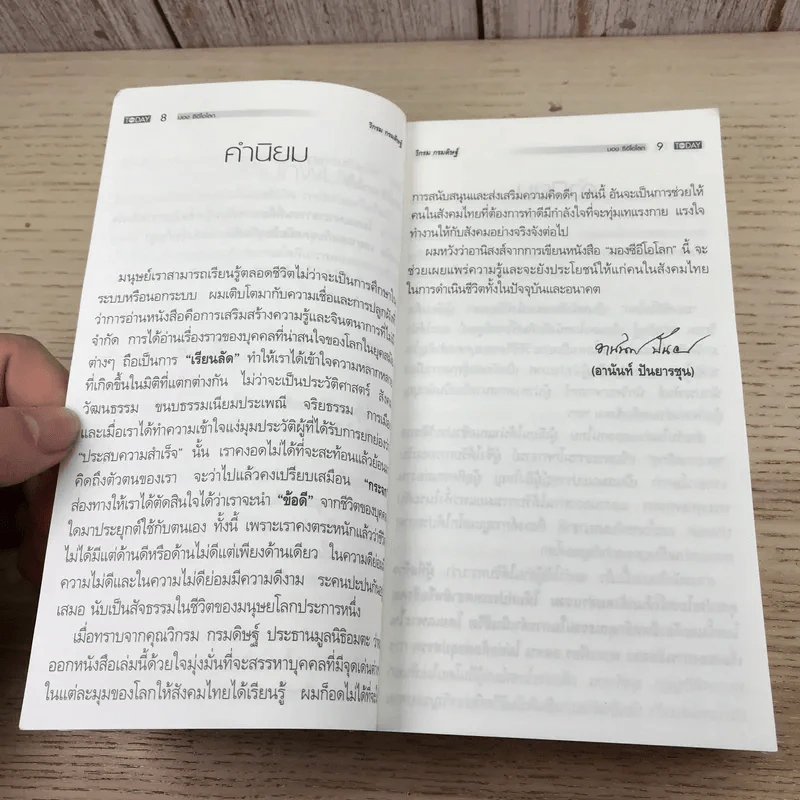 TODAY 8 มอง ซีอีโอโลก
วิกรม กรมดิษฐ์
คำนิยม
มนุษย์เราสามารถเรียนรู้ตลอดชีวิตไม่ว่าจะเป็นการศึกษาใน
ระบบหรือนอกระบบ ผมเติบโตมากับความเชื่อและการปลูกฝัง
ว่าการอ่านหนังสือคือการเสริมสร้างความรู้และจินตนาการที่ไม่
จำกัด การได้อ่านเรื่องราวของบุคคลที่น่าสนใจของโลกในยุคสมัย
ต่างๆ ถือเป็นการ “เรียนลัด” ทำให้เราได้เข้าใจความหลากหลาย
ที่เกิดขึ้นในมิติที่แตกต่างกัน ไม่ว่าจะเป็นประวัติศาสตร์ สังคม
วัฒนธรรม ขนบธรรมเนียมประเพณี จริยธรรม การเมือง
และเมื่อเราได้ทำความเข้าใจแง่มุมประวัติผู้ที่ได้รับการยกย่องว่า
“ประสบความสำเร็จ” นั้น เราคงอดไม่ได้ที่จะสะท้อนแล้วย้อนมา
คิดถึงตัวตนของเรา จะว่าไปแล้วคงเปรียบเสมือน “กระจก”
ส่องทางให้เราได้ตัดสินใจได้ว่าเราจะนำ “ข้อดี” จากชีวิตของบุคคล
ใดมาประยุกต์ใช้กับตนเอง ทั้งนี้ เพราะเราคงตระหนักแล้วว่าชีวิต
ไม่ได้มีแต่ด้านดีหรือด้านไม่ดีแต่เพียงด้านเดียว ในความดีย่อมมี
ความไม่ดีและในความไม่ดีย่อมมีความดีงาม ระคนปะปนกัน
เสมอ นับเป็นสัจธรรมในชีวิตของมนุษยโลกประการหนึ่ง
เมื่อทราบจากคุณวิกรม กรมดิษฐ์ ประธานมูลนิธิอมตะ ว่า
ออกหนังสือเล่มนี้ด้วยใจมุ่งมั่นที่จะสรรหาบุคคลที่มีจุดเด่น
ในแต่ละมุมของโลกให้สังคมไทยได้เรียนรู้ ผมก็อดไม่ได้ที่จะ
วิกรม กรมดิษฐ์ มอง ซีอีโอโลก 9 TODAY
การสนับสนุนและส่งเสริมความคิดดีๆ เช่นนี้ อันจะเป็นการช่วยให้
คนในสังคมไทยที่ต้องการทำดีมีกำลังใจที่จะทุ่มเทแรงกาย แรงใจ
ทำงานให้กับสังคมอย่างจริงจังต่อไป
ผมหวังว่าอานิสงส์จากการเขียนหนังสือ “มองซีอีโอโลก” นี้ จะ
ช่วยเผยแพร่ความรู้และจะยังประโยชน์ให้แก่คนในสังคมไทย
ในการดำเนินชีวิตทั้งในปัจจุบันและอนาคต
(อานันท์ ปันยารชุน)